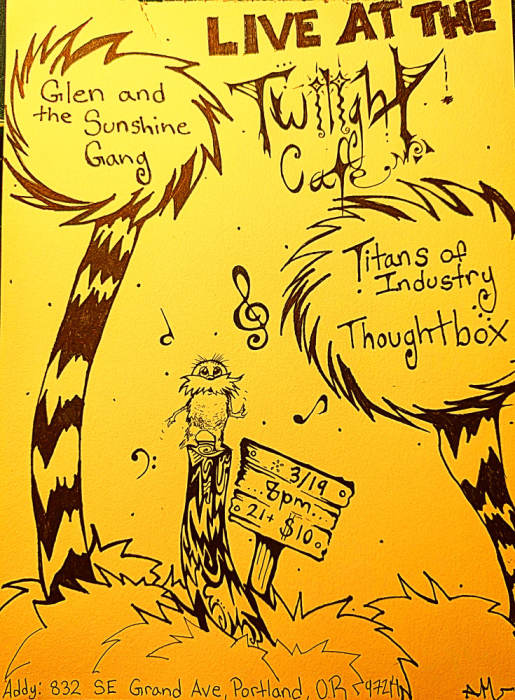 LIVE AT THE
Twilight
Cafe
Glen and
the Sunshine
Gang
Titans of
Industry
Thoughtbox
3/19
8pm
21+ $10
Addy: 832 SE Grand Ave, Portland, OR 97214
AM